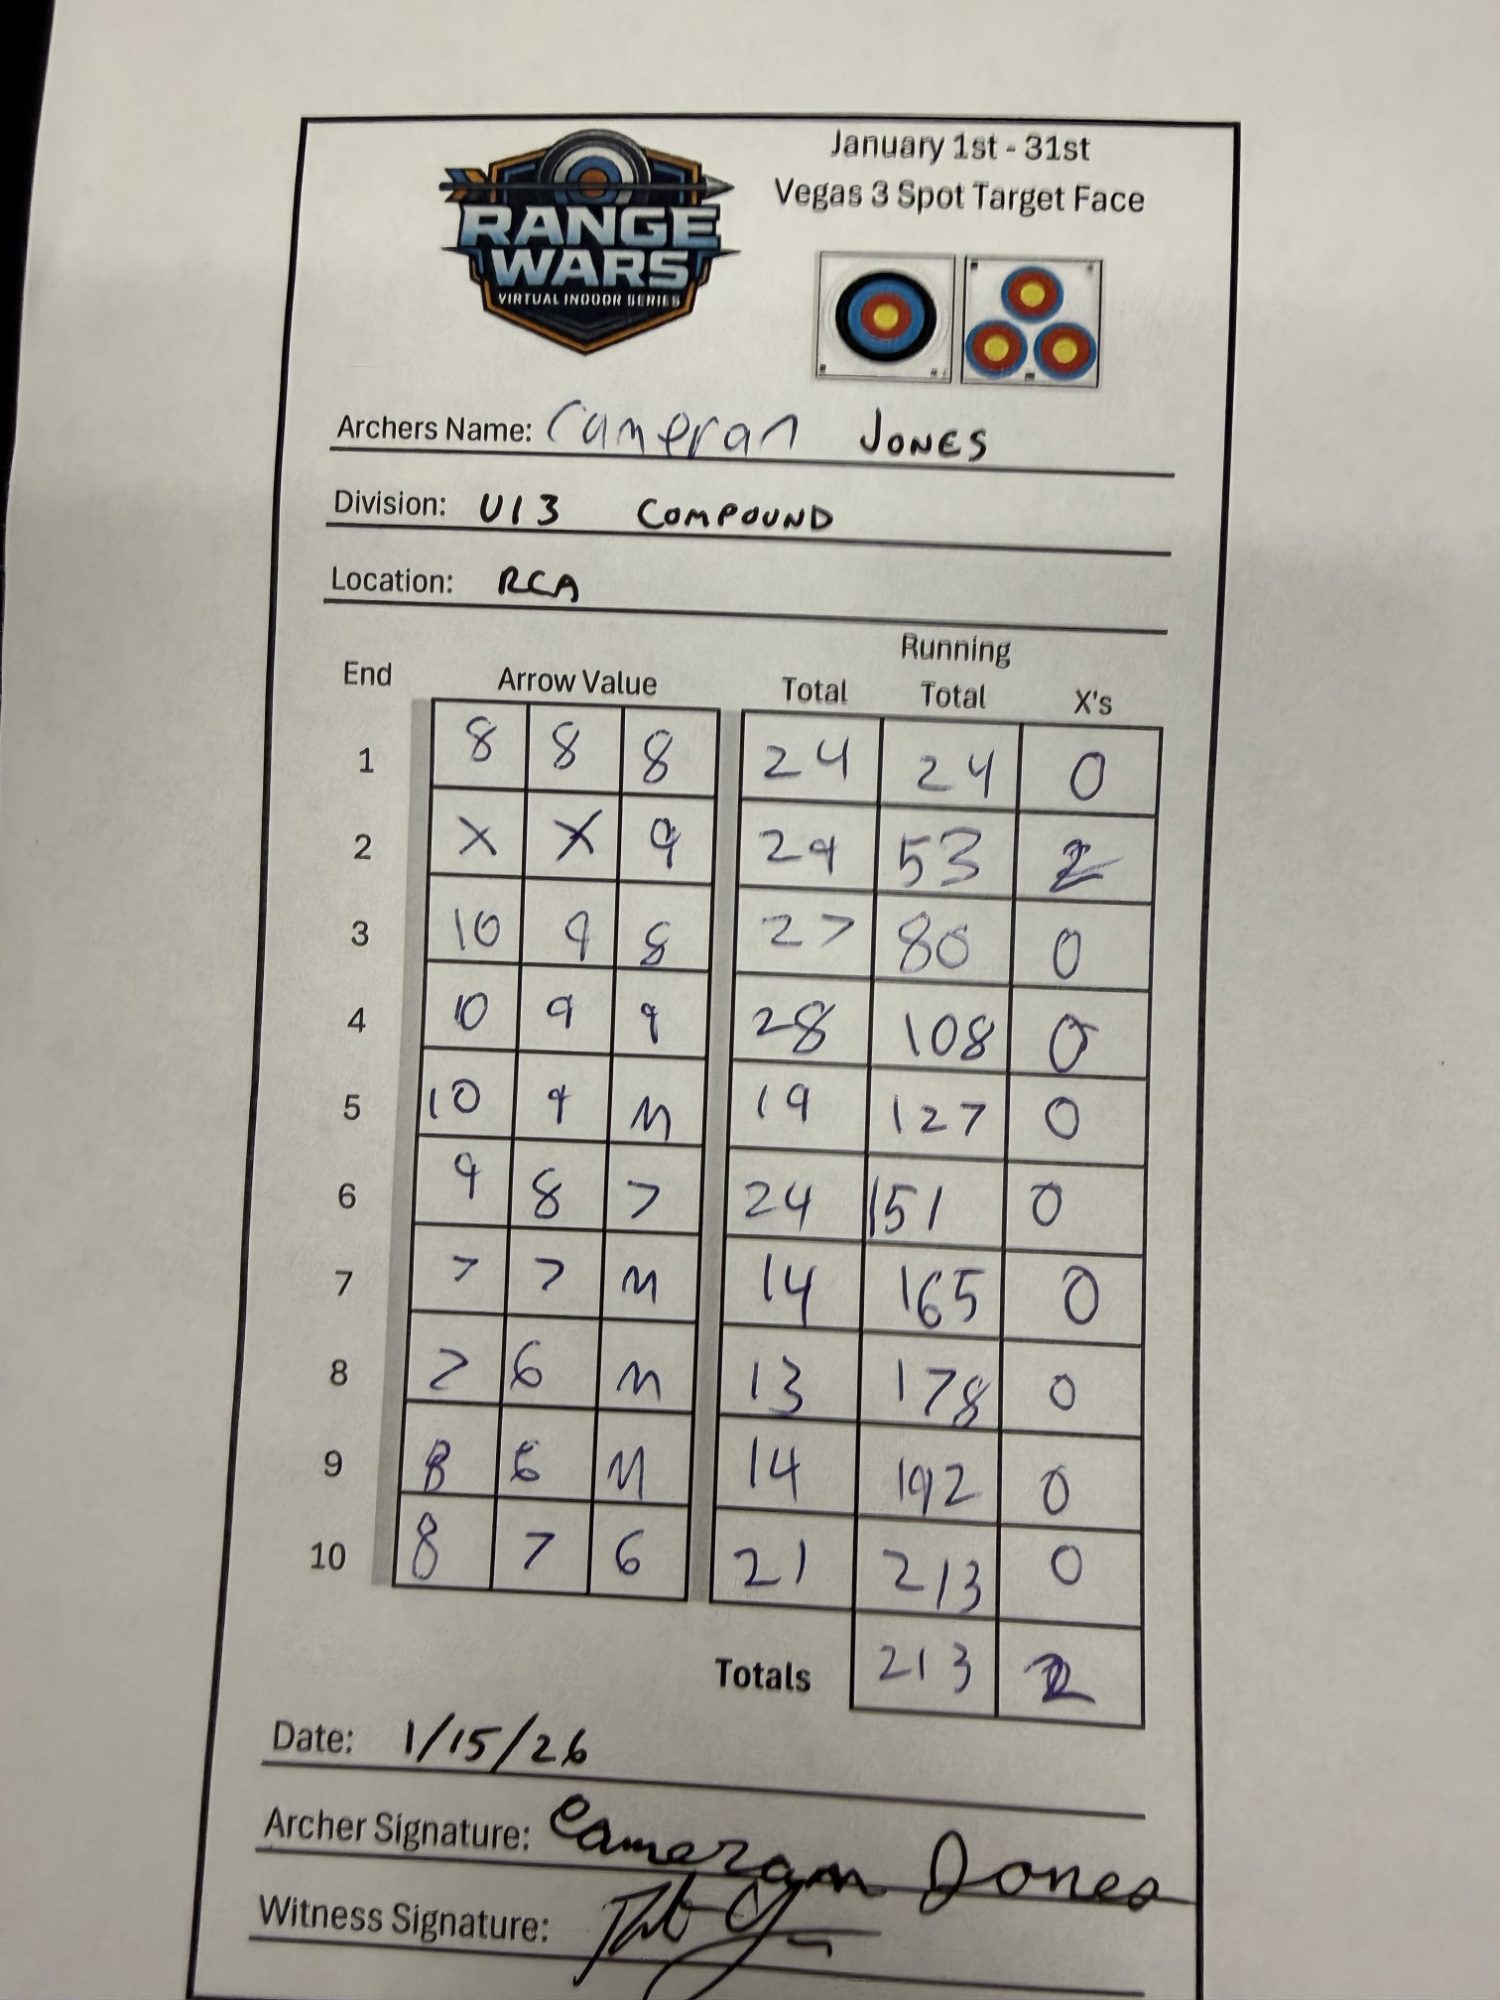 January 1st - 31st
Vegas 3 Spot Target Face
RANGE
WARS
VIRTUAL INDOOR SERIES
Archers Name: Cameran JONES
Division: U13 COMPOUND
Location: RCA
End Arrow Value Total Running Total X's
1 8 8 8 24 24 0
2 X X 9 29 53 2
3 10 9 8 27 80 0
4 10 9 9 28 108 0
5 10 9 M 19 127 0
6 9 8 7 24 151 0
7 7 7 M 14 165 0
8 7 6 M 13 178 0
9 8 6 M 14 192 0
10 8 7 6 21 213 0
Totals 213 2
Date: 1/15/26
Archer Signature: Cameran Jones
Witness Signature: